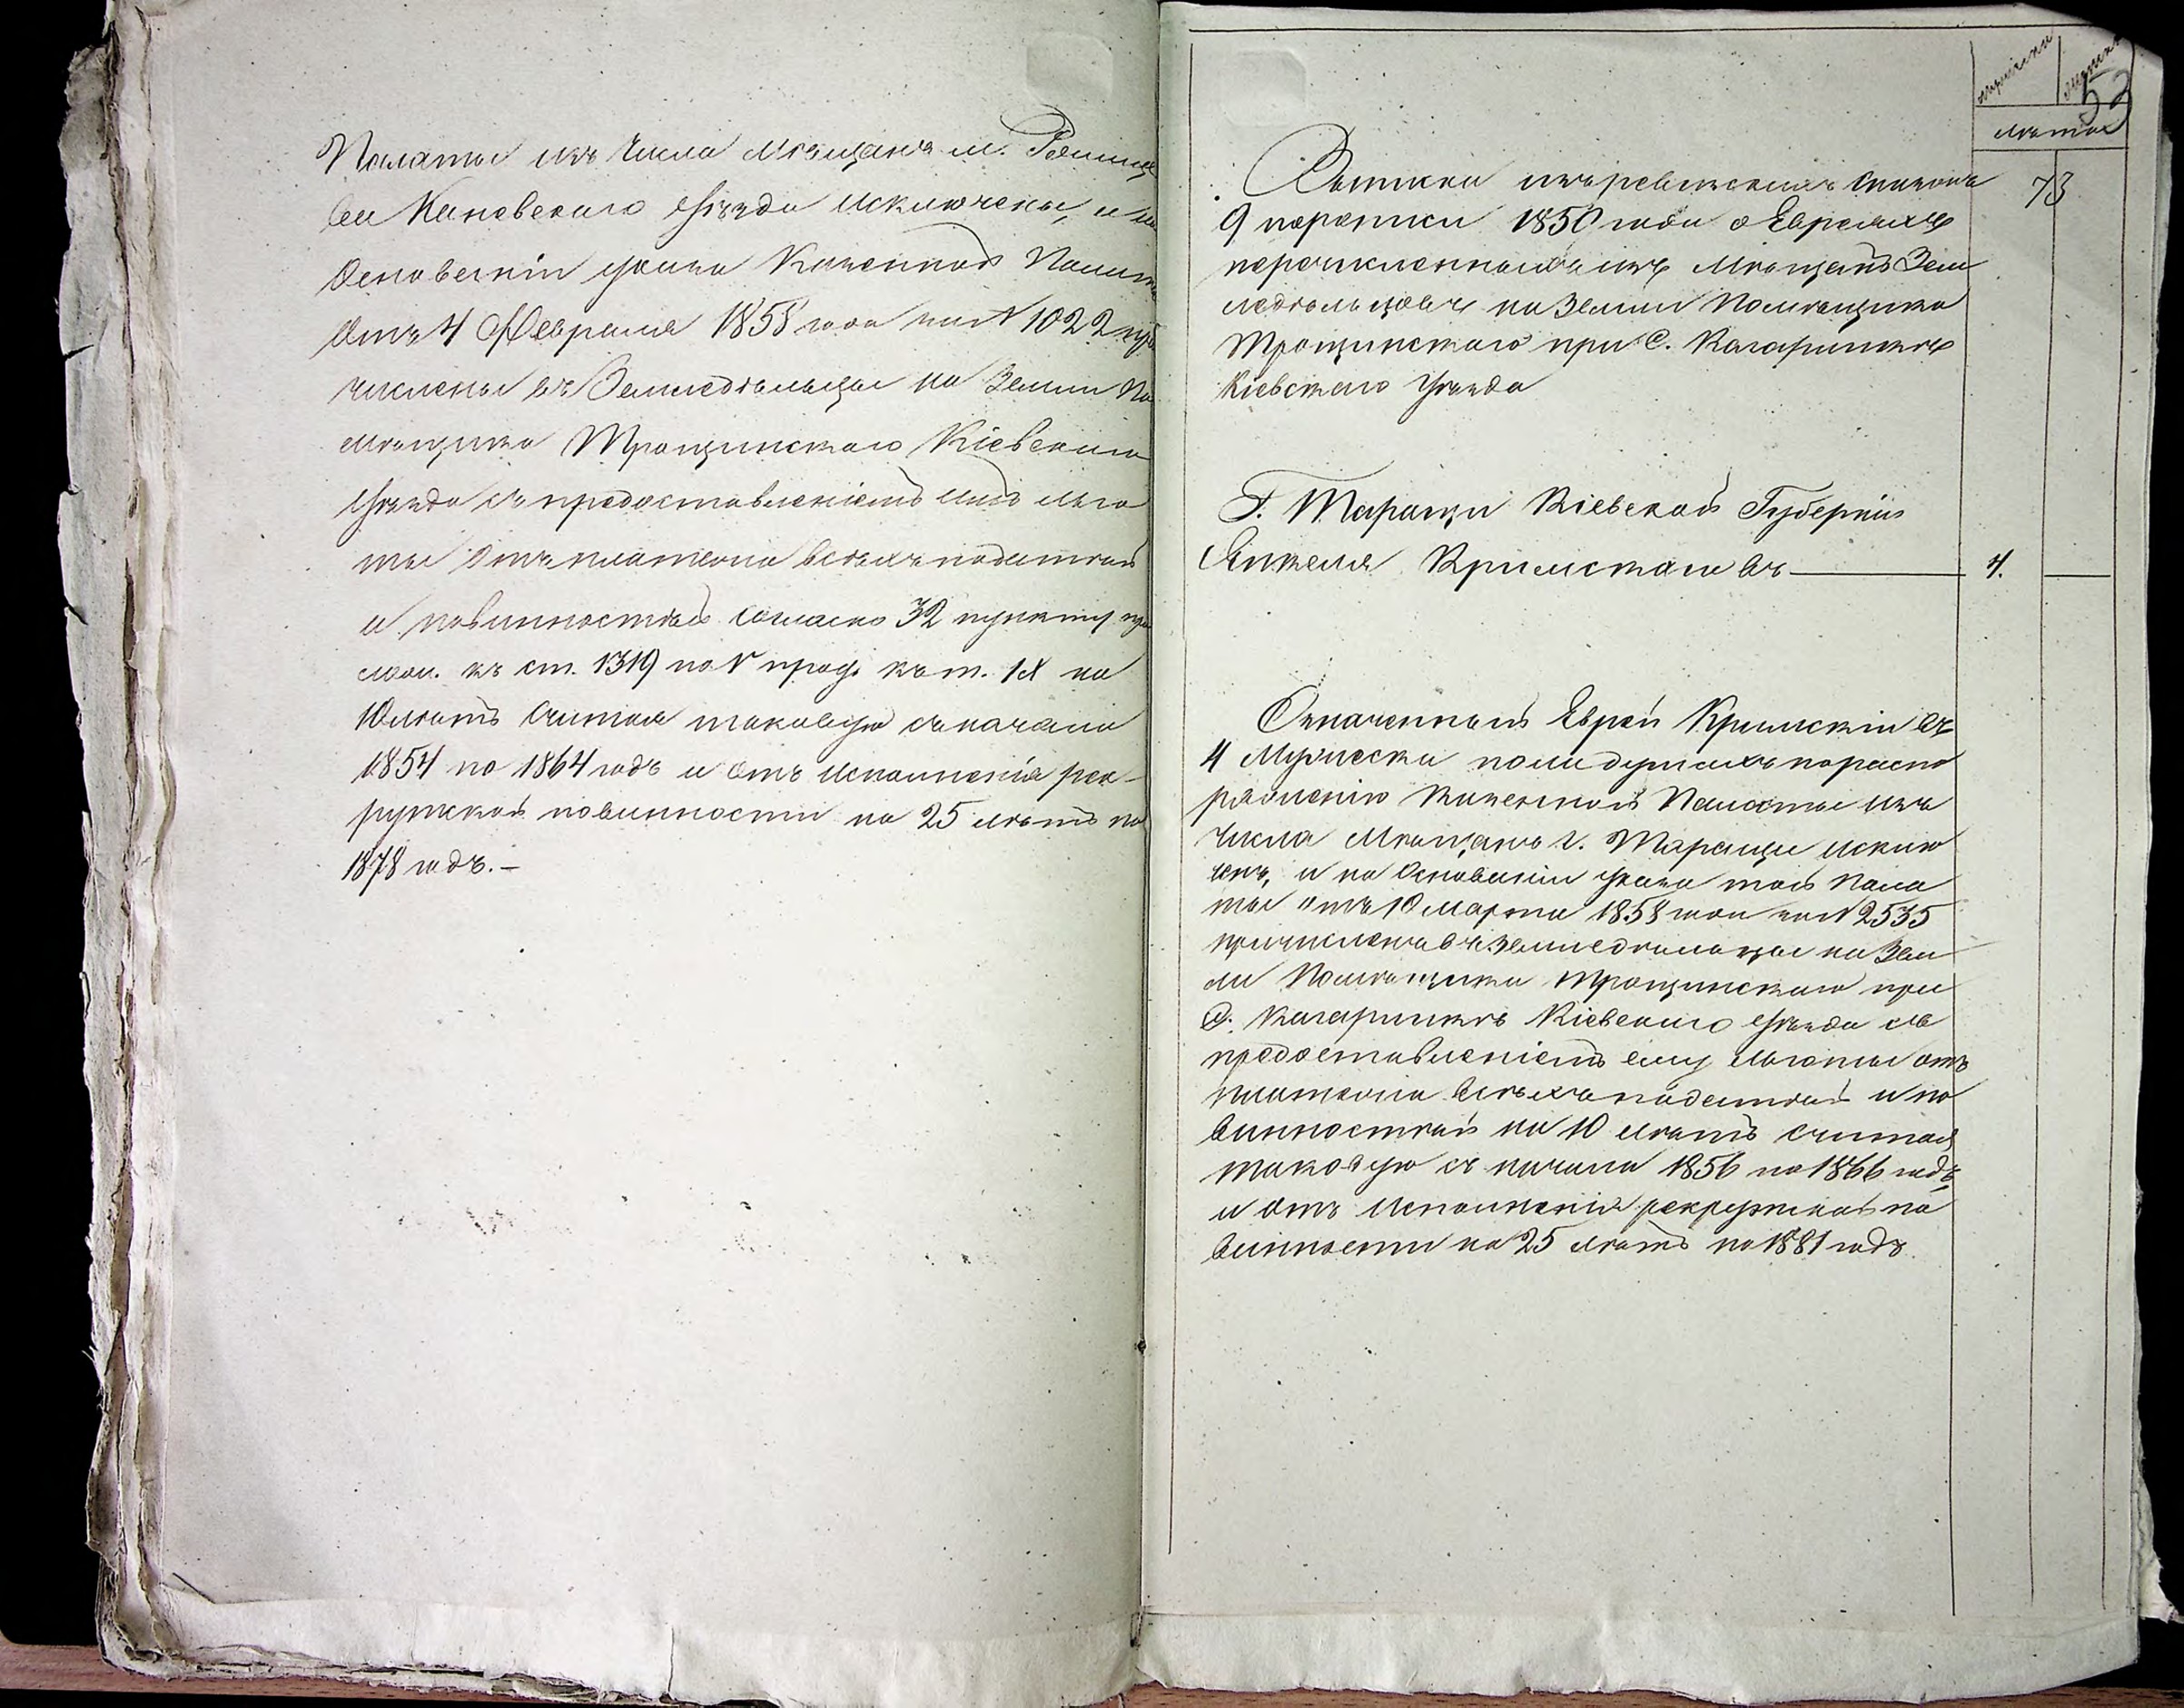 Палаты изъ числа мѣщанъ м.
Каневскаго уѣзда исключены, и на
Основаніи указа Казенной Палаты
Отъ 4 Февраля 1858 года за № 1022 при
числены въ Земледѣльцы на Земли По
мѣщика Трощинскаго Кіевскаго
уѣзда съ предоставленіемъ имъ льго
ты отъ платежа всѣхъ податей
и повинностей согласно 32 пункту при
лож. къ ст. 1319 по V прод. къ т. IX на
10 лѣтъ Считая таковую съ начала
1854 по 1864 годъ и отъ исполненія рек-
рутской повинности на 25 лѣтъ по
1878 годъ.—
мужеска женска
53
лѣта
73
Выписка изъ ревизскихъ списковъ
9 переписи 1850 года о Евреяхъ
перечисленныхъ изъ Мѣщанъ Зем
ледѣльцовъ на Земли Помѣщика
Трощинскаго при С. Кагарлыкѣ
Кіевскаго уѣзда
Г. Таращи Кіевской Губерніи
Янкеля Кримскаго въ — 4. —
Означенный Еврей Кримскій въ
4 Мужеска пола душахъ по распо
ряженію Казенной Палаты изъ
числа Мѣщанъ г. Таращи исклю
ченъ, и на Основаніи указа той Пала
ты отъ 10 марта 1858 года за № 2535
причисленъ въ земледѣльцы на Зем
ли Помѣщика Трощинскаго при
С. Кагарлыкѣ Кіевскаго уѣзда съ
предоставленіемъ ему льготы отъ
платежа всѣхъ податей и по
винностей на 10 лѣтъ считая
таковую съ начала 1856 по 1866 годъ,
и отъ исполненія рекрутской по
винности на 25 лѣтъ по 1881 годъ.